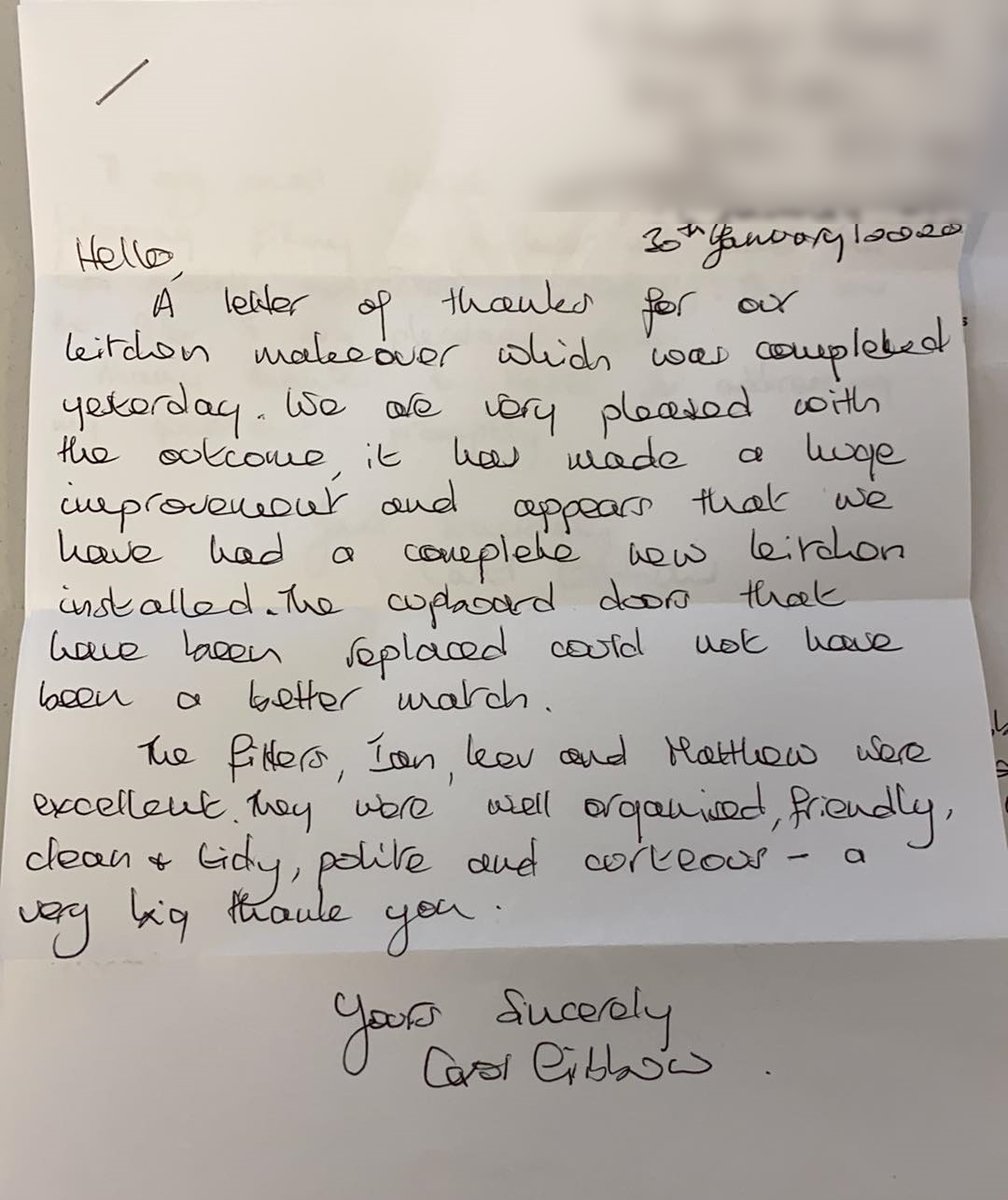 30th January 2020
Hello,
A letter of thanks for our
kitchen makeover which was completed
yesterday. We are very pleased with
the outcome, it has made a huge
improvement and appears that we
have had a complete new kitchen
installed. The cupboard doors that
have been replaced could not have
been a better match.
The fitters, Ian, Kev and Matthew were
excellent. They were well organised, friendly,
clean & tidy, polite and corteous - a
very big thank you.
Yours Sincerely
Carol